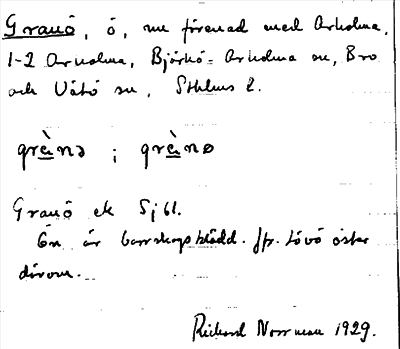 Granö, ö, nu förenad med Arholma,
1-2 Arholma, Björkö-Arholma sn, Bro
och Vätö sn, Sthlms l.
grànə ; grànø
Granö ek Sjöl.
Ön är barrskogsklädd. Jfr. Lövö öster
därom.
Rickard Norrman 1929.